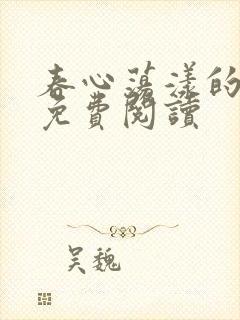 春心蕩漾的
免費閱讀
吴魏